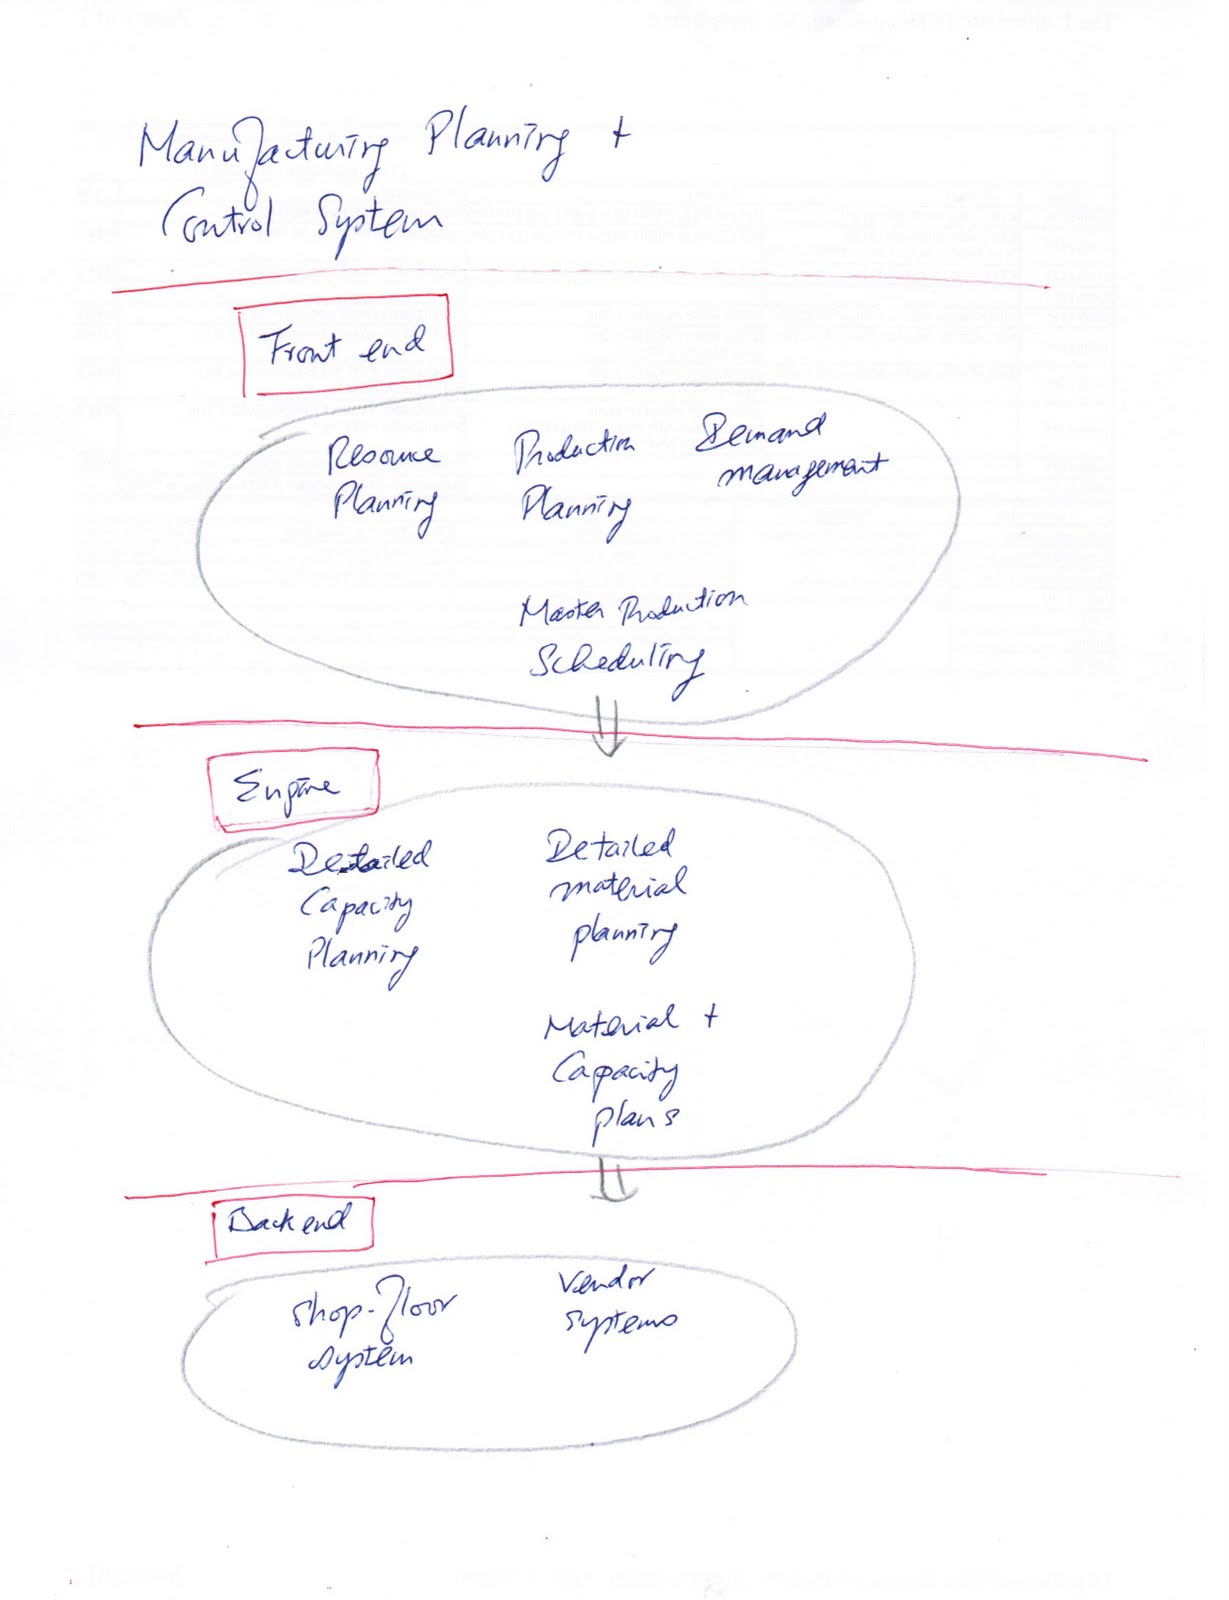 Manufacturing Planning +
Control System
Front end
Resource
Planning
Production
Planning
Demand
management
Master Production
Scheduling
Engine
Detailed
Capacity
Planning
Detailed
material
planning
Material +
Capacity
plans
Back end
Shop-floor
system
Vendor
systems